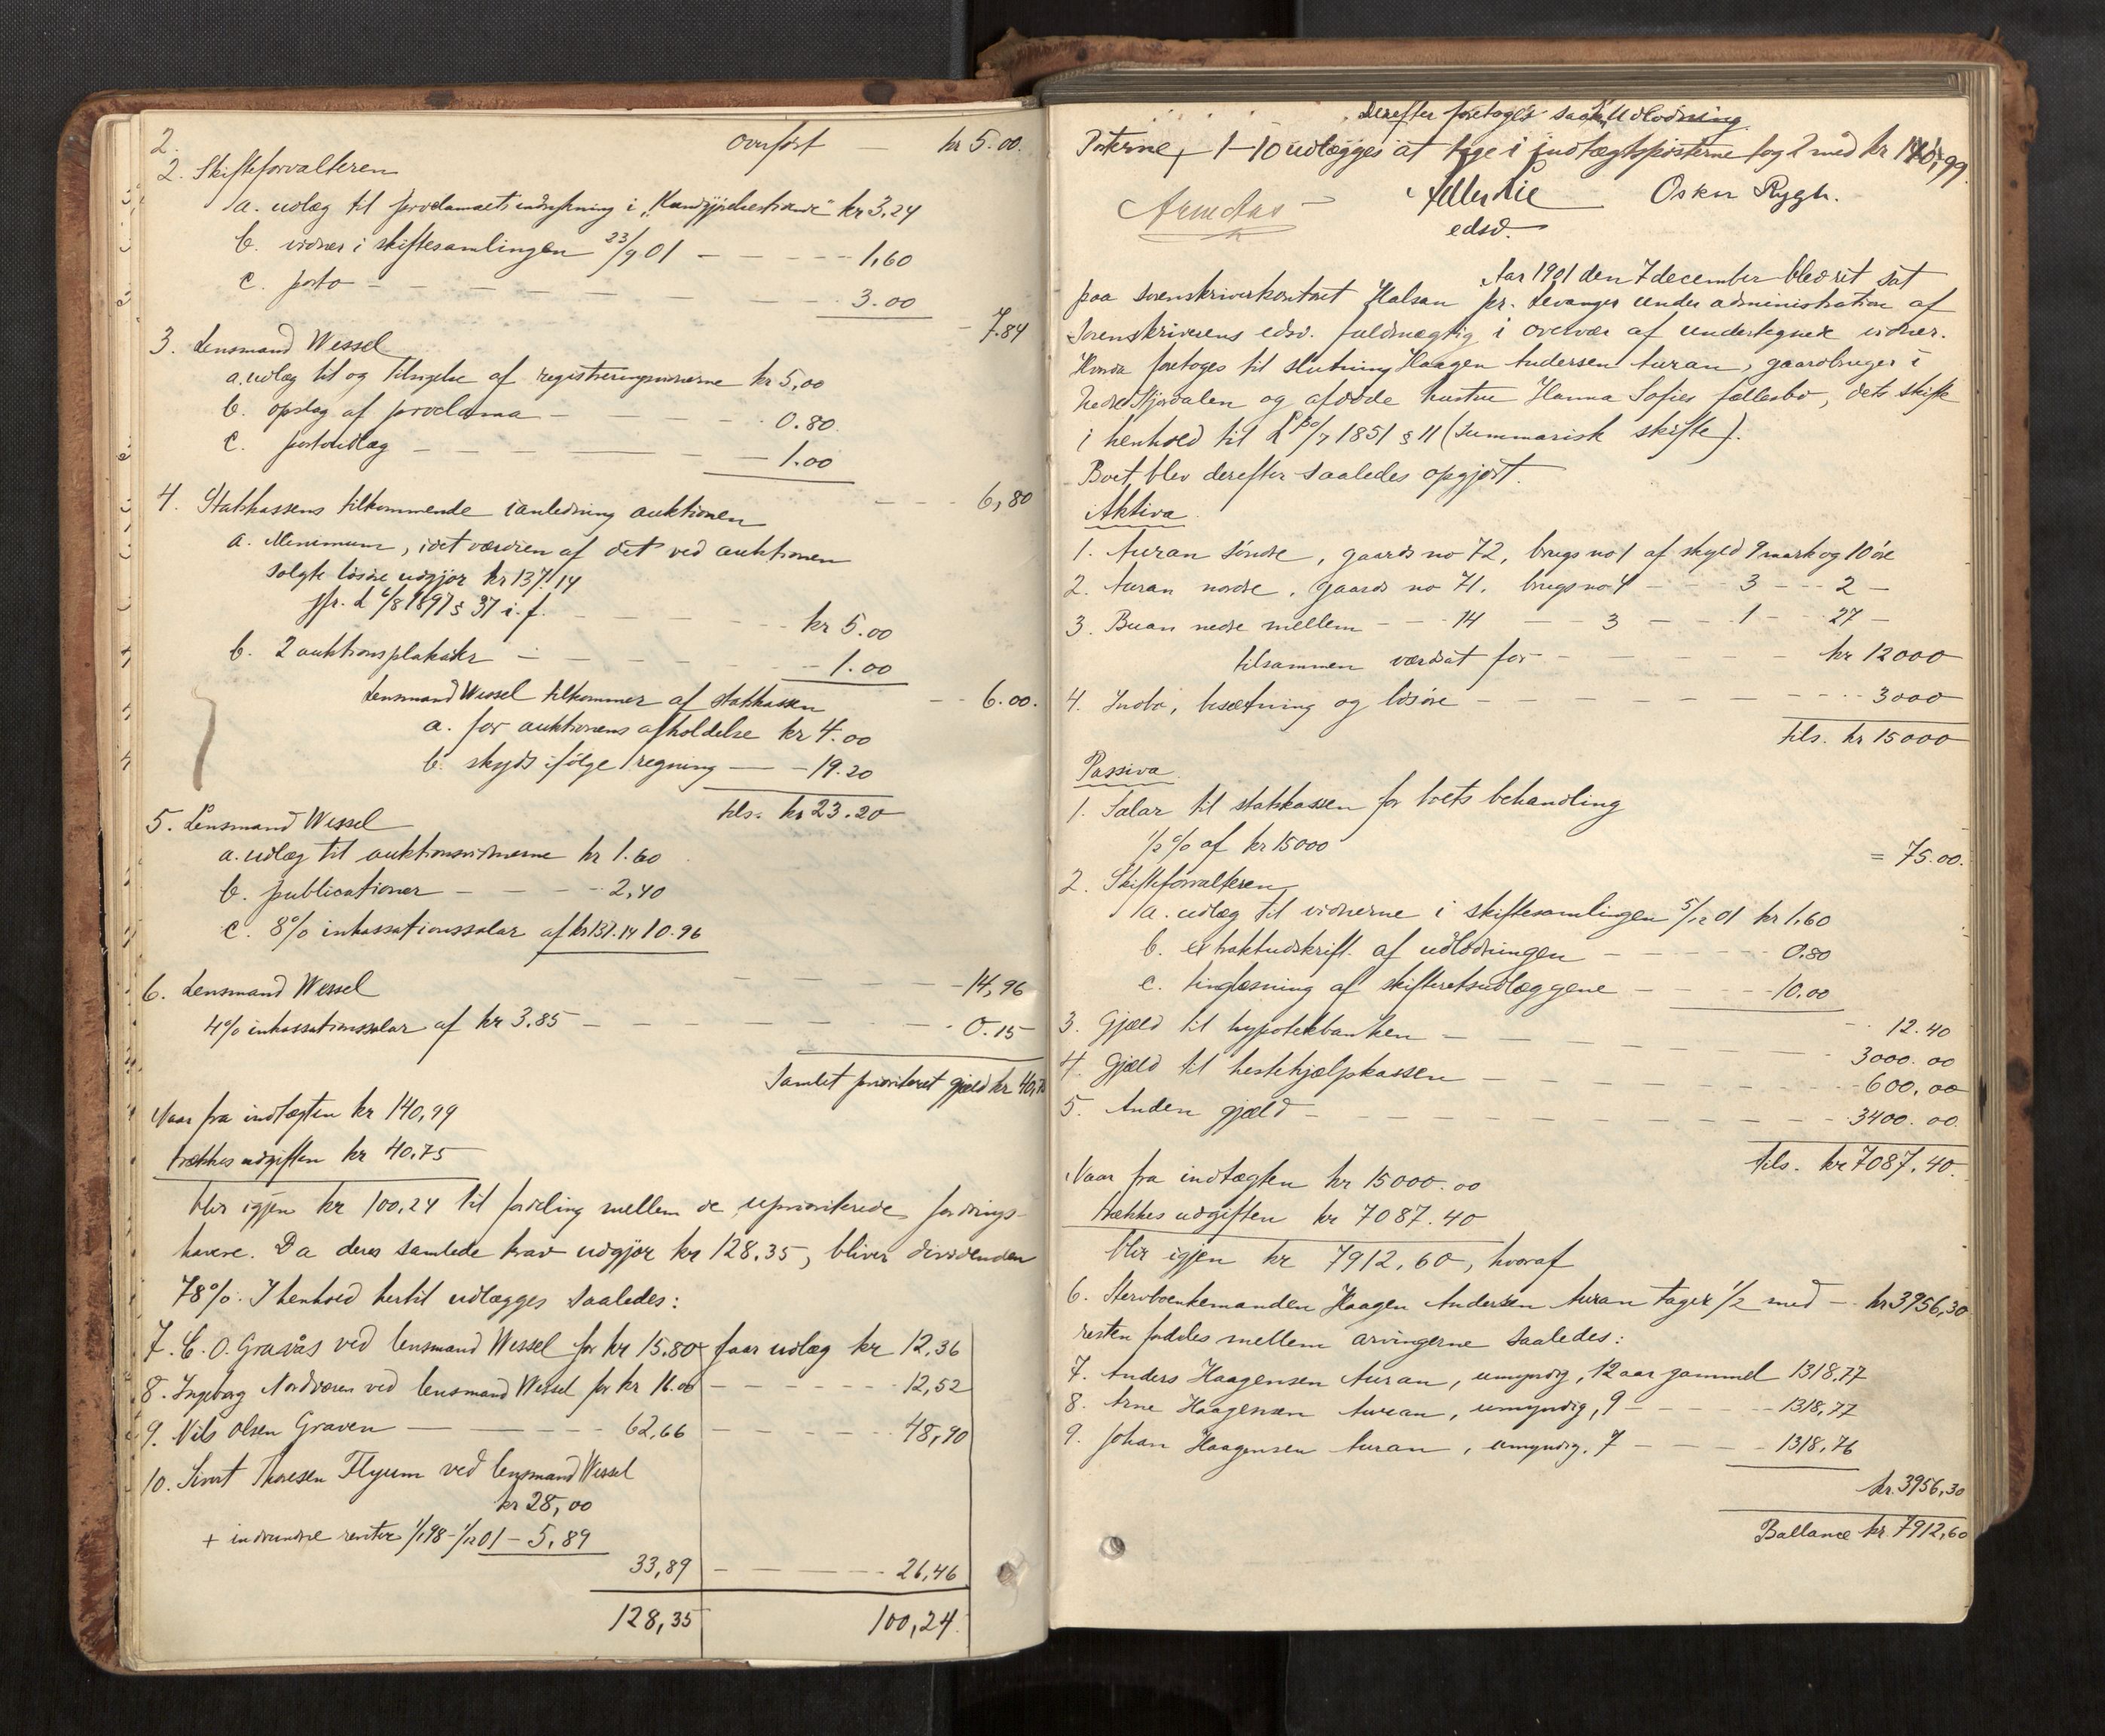 2. overført — kr 5.00.
2. Skifteforvalteren
a. udlæg til proclamaets indrykning i „Kundgjørelsestidende" kr 3,24
b. vidner i skiftesamlingen 23/9 01 - - - - - 1,60
c. porto - - - - - - - 3.00
- 7.84
3. Lensmand Wessel
a. udlæg til og tilsigelse af registreringsvidnerne kr 5,00
b. opslag af proclama - - - - 0.80
c. portoudlæg - - - - - 1.00
- - - 6,80
4. Statskassens tilkommende i anledning auktionen
a. Minimum, idet værdien af det ved auktionen
solgte løsøre udgjør kr 137.14
jfr. L 6/8 1897 § 37 i. f. - - - - - kr 5.00
b. 2 auktionsplakater - - - - - 1.00
- - 6.00.
Lensmand Wessel tilkommer af statskassen
a. for auktionens afholdelse kr 4.00
b. skyds ifølge regning - - 19.20
tils. kr 23.20
5. Lensmand Wessel
a. udlæg til auktionsvidnerne kr 1.60
b. publicationer - - - - 2,40
c. 8% inkassationssalar af kr 137.14 10.96
- - - - 14,96
6. Lensmand Wessel
4% inkassationssalar af kr 3.85 - - - - - 0.15
Samlet prioriteret gjæld kr 40,75
Naar fra indtægten kr 140,99
trækkes udgiften kr 40.75
blir igjen kr 100,24 til fordeling mellem de uprioriterede fordrings-
havere. Da deres samlede krav udgjør kr 128.35, bliver dividenden
78%. I henhold hertil udlægges saaledes:
7. C. O. Gravås ved lensmand Wessel for kr 15.80 faar udlæg kr 12,36
8. Ingeborg ved lensmand Wessel for kr 16.00 - - - - - 12,52
9. Nils Olsen Graven - - - - - 62,66 - - - - - 48,90
10. Sivert Thoresen Flyum ved lensmand Wessel
kr 28,00
+ indvundne renter 1/1 98 - 1/12 01 - 5,89
33,89 - - - - - 26,46
128,35 100,24.
Derefter foretoges saadan Udlodning
Posterne 1-10 udlægges at tage i indtægtsposterne 1 og 2 med kr 140,99.
Oskar Rygh.
edsv.
Aar 1901 den 7 december blev ret sat
paa sorenskriverkontoret Halsan pr. Levanger under administration af
sorenskriverens edsv. fuldmægtig i overvær af undertegnede vidner.
Hvorda foretoges til slutning Haagen Andersen Auran, gaardbruger i
nedre Stjørdalen og afdøde hustru Hanna Sofies fællesbo, dets skifte
i henhold til L 30/7 1851 § 11 (Summarisk skifte).
Boet blev derefter saaledes opgjort.
Aktiva
1. Auran søndre, gaards no 72, brugs no 1 af skyld 9 mark og 10 øre
2. Auran nordre, gaards no 71. brugs no 4 - - 3 - - - 2 -
3. Buan nedre mellem - - - 14 - - 3 - - 1 - - 27 -
tilsammen værdsat for - - - - - - kr 12000
4. Indbo, besætning og løsøre - - - - - - - 3000
tils. kr 15000
Passiva
1. Salær til statskassen for boets behandling
1/2 % af kr 15000 = 75.00.
2. Skifteforvalteren
a. udlæg til vidnerne i skiftesamlingen 5/12 01 kr 1.60
b. extraktudskrift af udlodningen - - - - - 0.80
c. tinglæsning af skifteretsudlæggene - - - - 10.00
- - 12.40
3. Gjæld til hypotekbanken - - - - - - 3000.00
4. Gjæld til hestehjælpskassen - - - - - - 600.00
5. Anden gjæld - - - - - - - - 3400.00.
tils. kr 7087.40.
Naar fra indtægten kr 15000.00
trækkes udgiften kr 7087.40
blir igjen kr 7912.60, hvoraf
6. Stervboenkemanden Haagen Andersen Auran tager 1/2 med - kr 3956,30
resten fordeles mellem arvingerne saaledes:
7. Anders Haagensen Auran, umyndig, 12 aar gammel 1318,77
8. Arne Haagensen Auran, umyndig, 9 - - - - - 1318,77
9. Johan Haagensen Auran, umyndig. 7 - - - - 1318,76
kr. 3956,30
Ballance kr. 7912,60